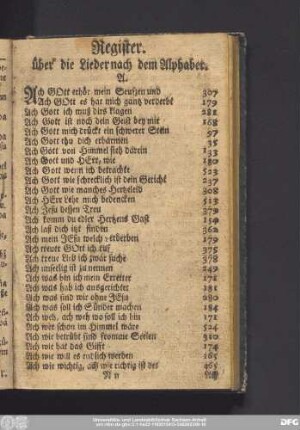 Register.
über die Lieder nach dem Alphabet.
A.
Ach GOtt erhör mein Seufzen und 307
Ach GOtt es hat mich gantz verderbt 179
Ach Gott ich muß dirs klagen 281
Ach Gott ist noch dein Geist bey mir 168
Ach Gott mich drückt ein schwerer Stein 57
Ach Gott thu dich erbarmen 35
Ach Gott von Himmel sieh darein 133
Ach Gott und HErr, wie 180
Ach Gott wenn ich betrachte 523
Ach Gott wie schrecklich ist dein Gericht 237
Ach Gott wie manches Hertzeleid 308
Ach HErr lehre mich bedencken 513
Ach JEsu dessen Treu
Ach komm du edler Hertzens Gast
Ach laß dich itzt finden 362
Ach mein JEsu welch verderben 179
Ach treuer GOtt ich ruf 375
Ach treue Lieb ich zwar suche 378
Ach unselig ist zu nennen 249
Ach was bin ich mein Erretter 171
Ach was hab ich ausgerichtet 181
Ach was sind wir ohne JEsu 280
Ach was soll ich Sünder machen 184
Ach weh, ach weh wo soll ich hin 171
Ach wer schon im Himmel wäre 524
Ach wie betrübt sind fromme Seelen 310
Ach wie hat das Gifft 174
Ach wie will es endlich werden 165
Ach wie wichtig, ach wie richtig ist der 465
N n